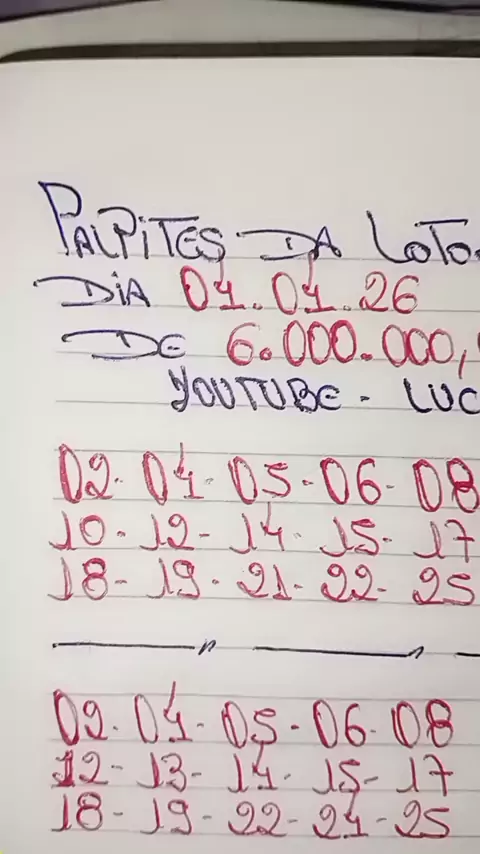 PALPITES DA LOTO
DIA 04.04.26
DE 6.000.000,
YOUTUBE - LUC
02- 04- 05-06-08
10- 12- 14- 15- 17
18- 19- 21- 22- 25
02- 04- 05-06-08
12- 13- 14- 15- 17
18- 19- 22- 24- 25